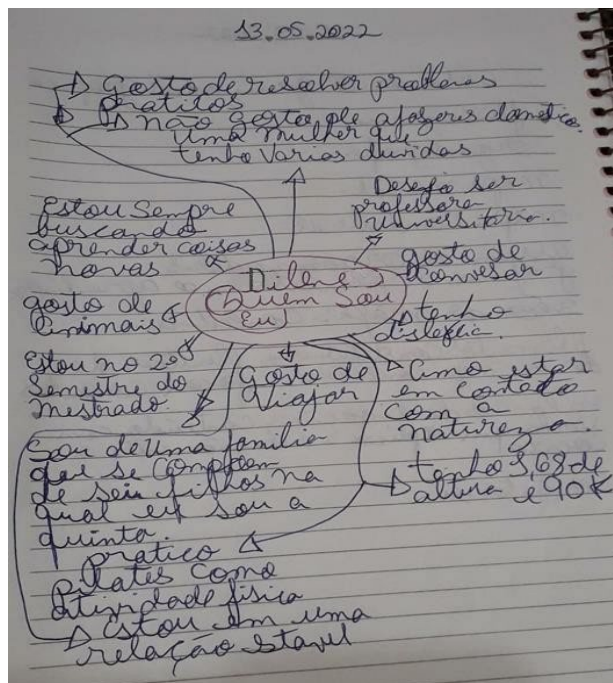 13.05.2022
Gosto de resolver problemas
Pratitos
não gosto de afazeres dometico.
uma mulher que
tenho varias duvidas
Desejo ser
professora
Universitaria.
Estou Sempre
buscando
aprender coisas
novas
gosto de
Convesar
Dilene
Quem Sou
Eu
gosto de
Animais
tenho
dislexia.
Estou no 2º
Semestre do
mestrado.
gosto de
Viajar
Amo estar
em contado
com a
natureza.
Sou de uma familia
que se compoem
de seis filhos na
qual eu sou a
quinta.
tenho 1,68 de
altura e 90K
pratico
Pilates como
atividade fisica
Estou em uma
relação stavel